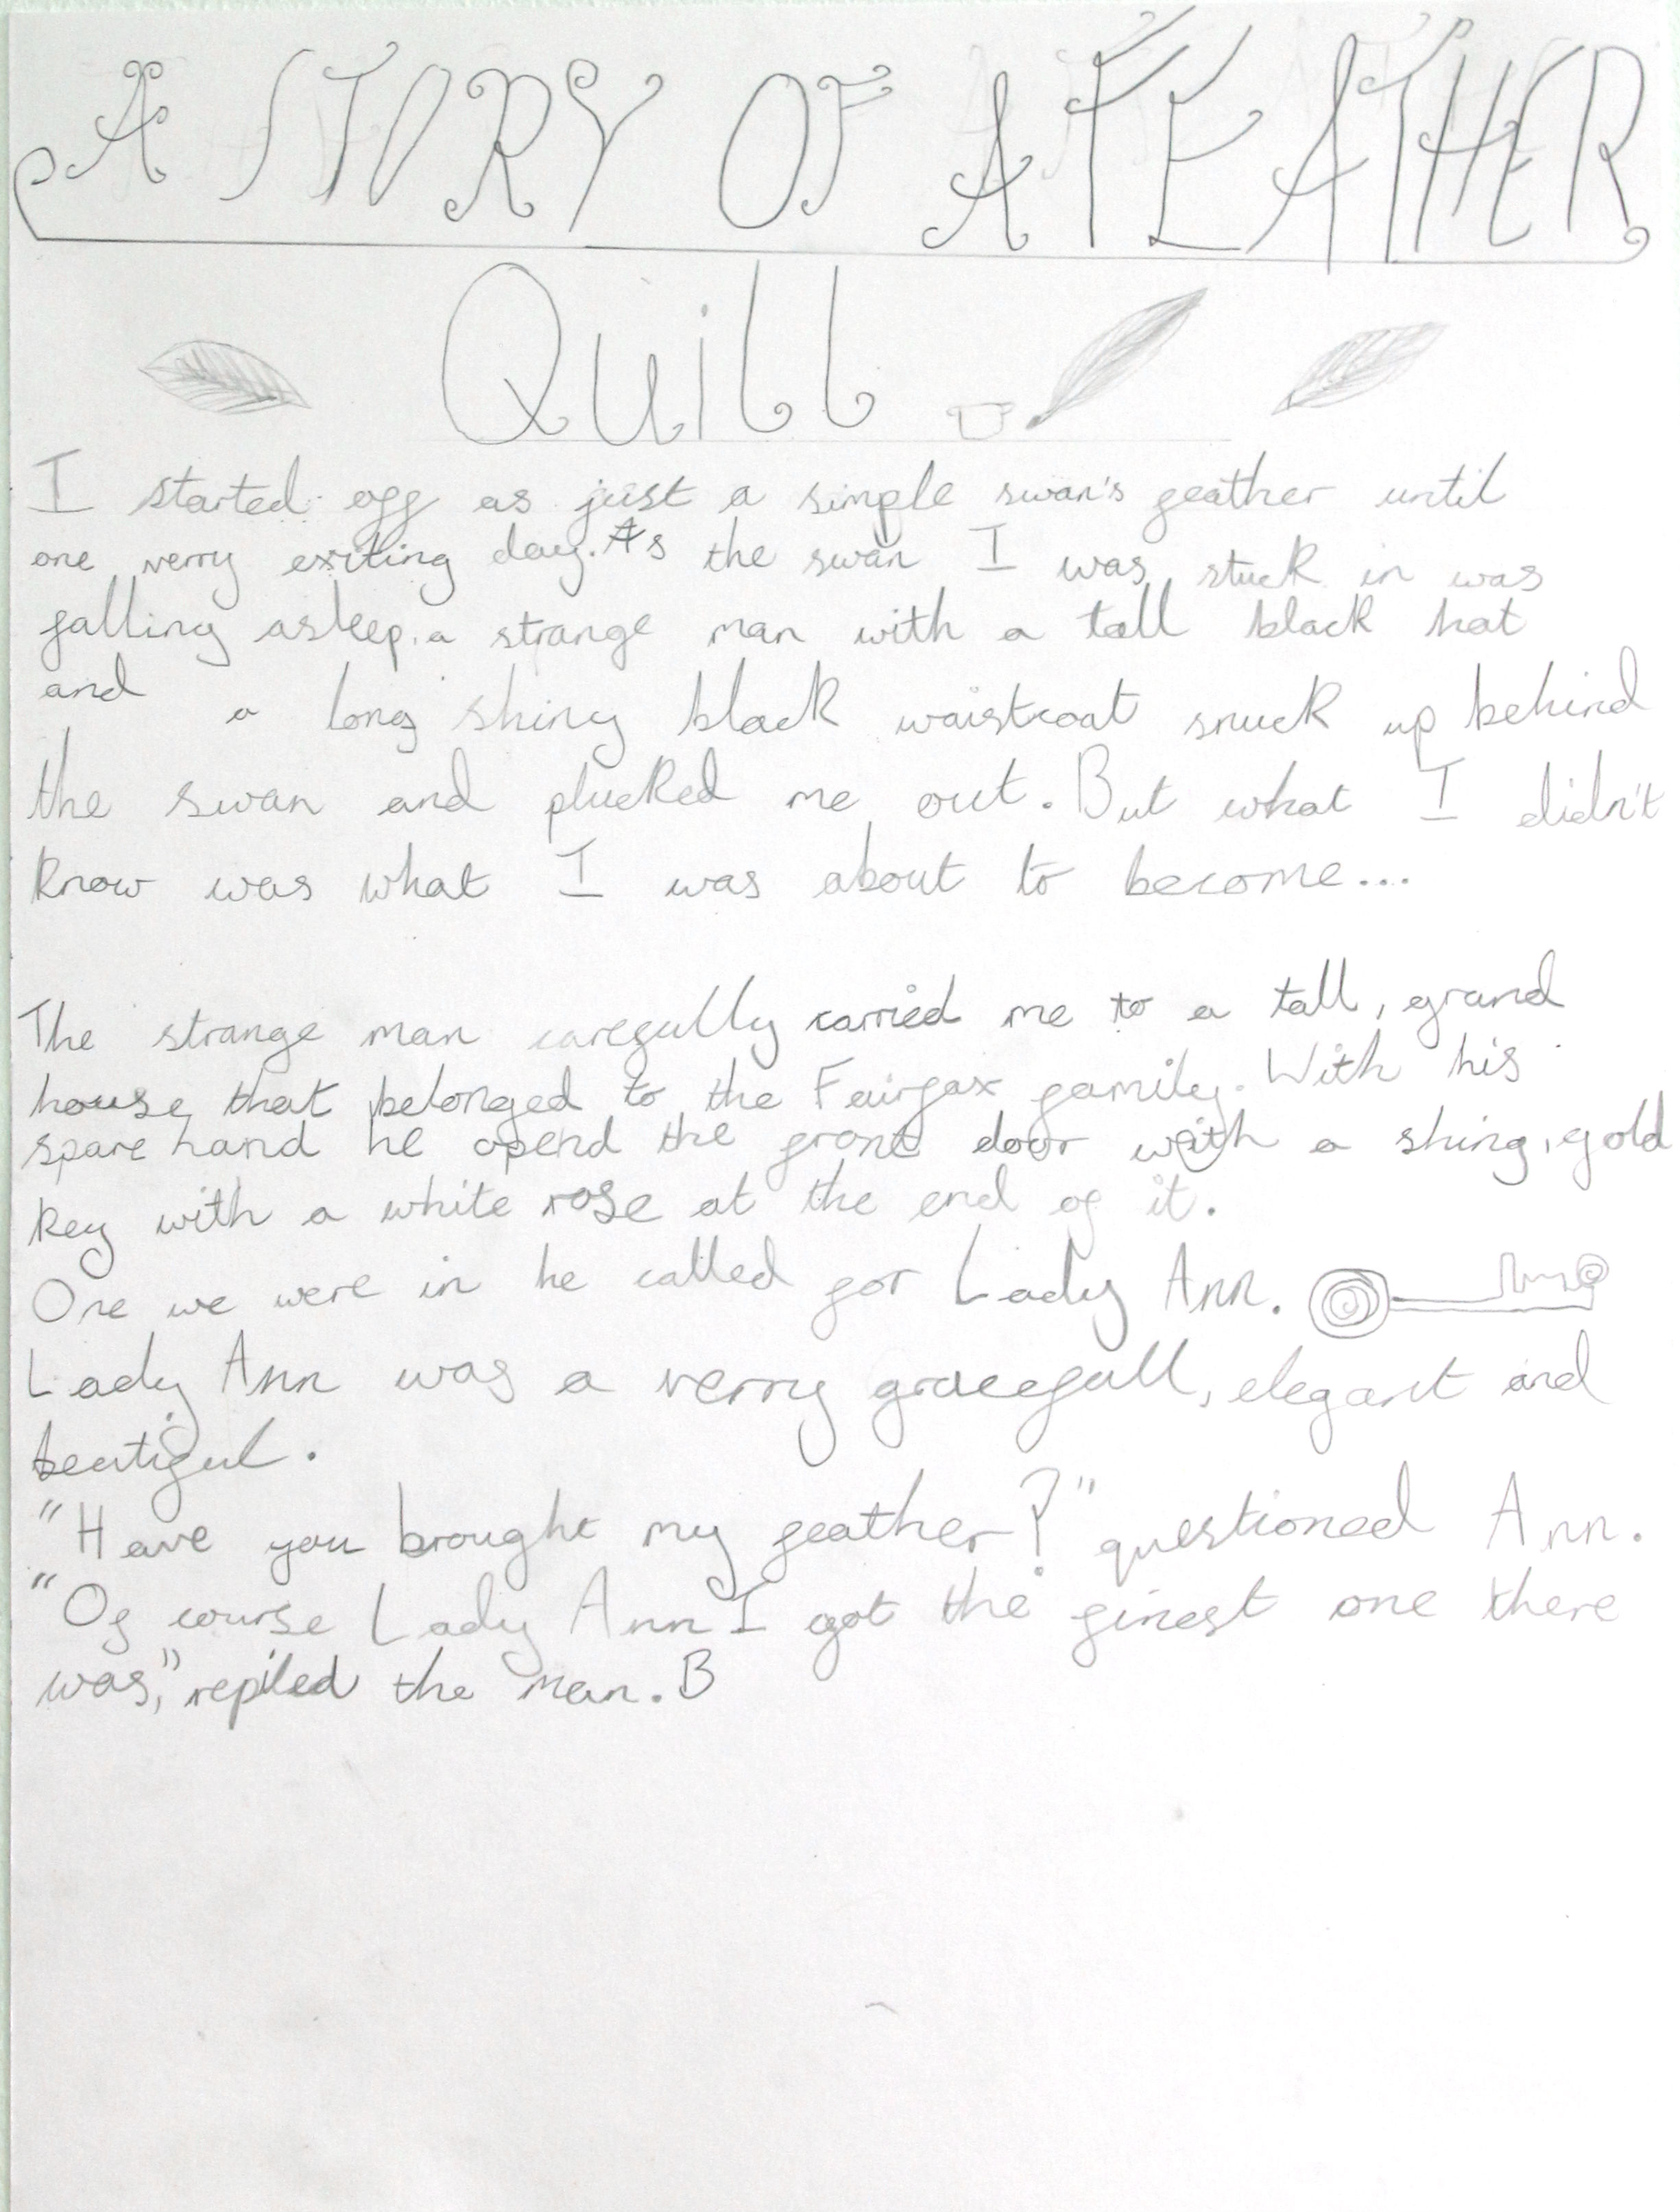 A STORY OF A FEATHER
Quill
I started off as just a simple swan's feather until
one verry exiting day. As the swan I was stuck in was
falling asleep, a strange man with a tall black hat
and a long shiny black waistcoat snuck up behind
the swan and plucked me out. But what I didn't
know was what I was about to become...
The strange man carefully carried me to a tall, grand
house that belonged to the Fairfax family. With his
spare hand he opend the front door with a shiny, gold
key with a white rose at the end of it.
One we were in he called for Lady Ann.
Lady Ann was a verry gracefull, elegant and
beutiful.
"Have you brought my feather?" questioned Ann.
"Of course Lady Ann I got the finest one there
was," replied the man. B